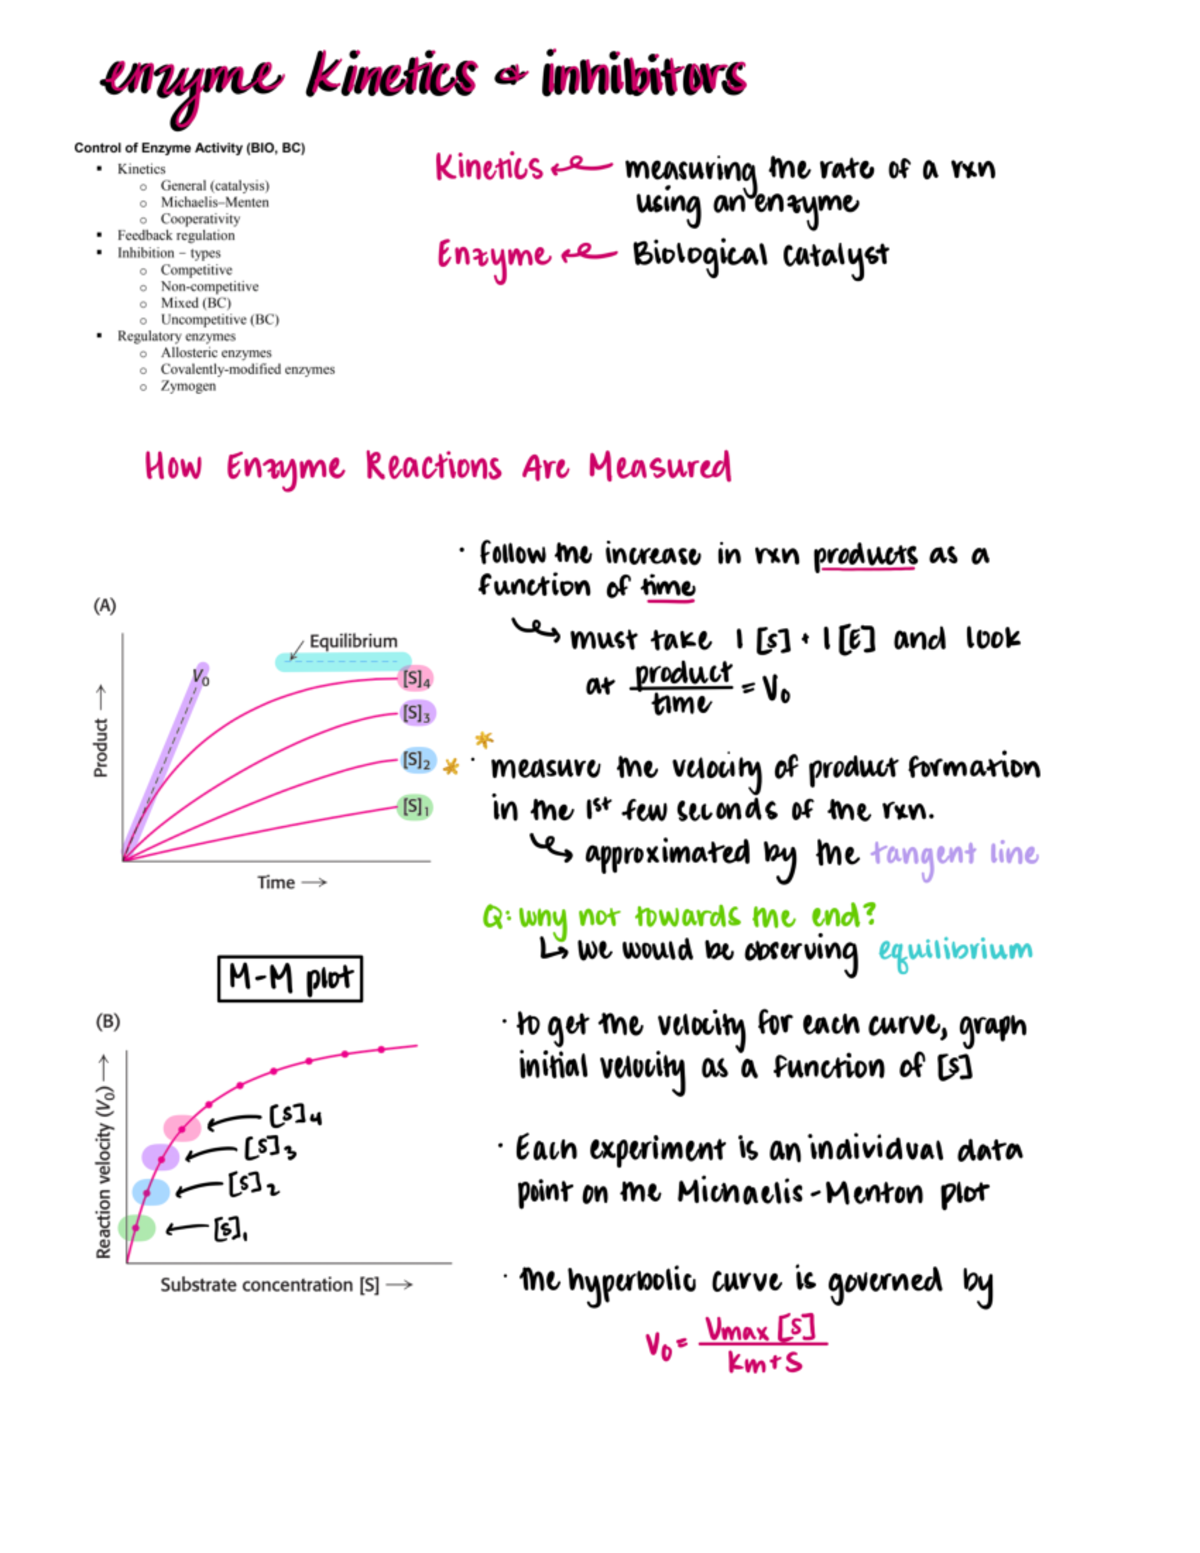 enzyme kinetics & inhibitors
Control of Enzyme Activity (BIO, BC)
▪ Kinetics
o General (catalysis)
o Michaelis–Menten
o Cooperativity
▪ Feedback regulation
▪ Inhibition – types
o Competitive
o Non-competitive
o Mixed (BC)
o Uncompetitive (BC)
▪ Regulatory enzymes
o Allosteric enzymes
o Covalently-modified enzymes
o Zymogen
Kinetics ← measuring the rate of a rxn
using an enzyme
Enzyme ← Biological catalyst
How Enzyme Reactions Are Measured
(A)
Equilibrium
V₀
[S]₄
[S]₃
[S]₂
[S]₁
Product →
Time →
· follow the increase in rxn products as a
function of time
↪ must take 1 [S] + 1 [E] and look
at product/time = V₀
* * · measure the velocity of product formation
in the 1st few seconds of the rxn.
↪ approximated by the tangent line
Q: why not towards the end?
↳ we would be observing equilibrium
M-M plot
(B)
Reaction velocity (V₀) →
[S]₄
[S]₃
[S]₂
[S]₁
Substrate concentration [S] →
· to get the velocity for each curve, graph
initial velocity as a function of [S]
· Each experiment is an individual data
point on the Michaelis-Menton plot
· the hyperbolic curve is governed by
V₀ = Vmax [S] / Km + S